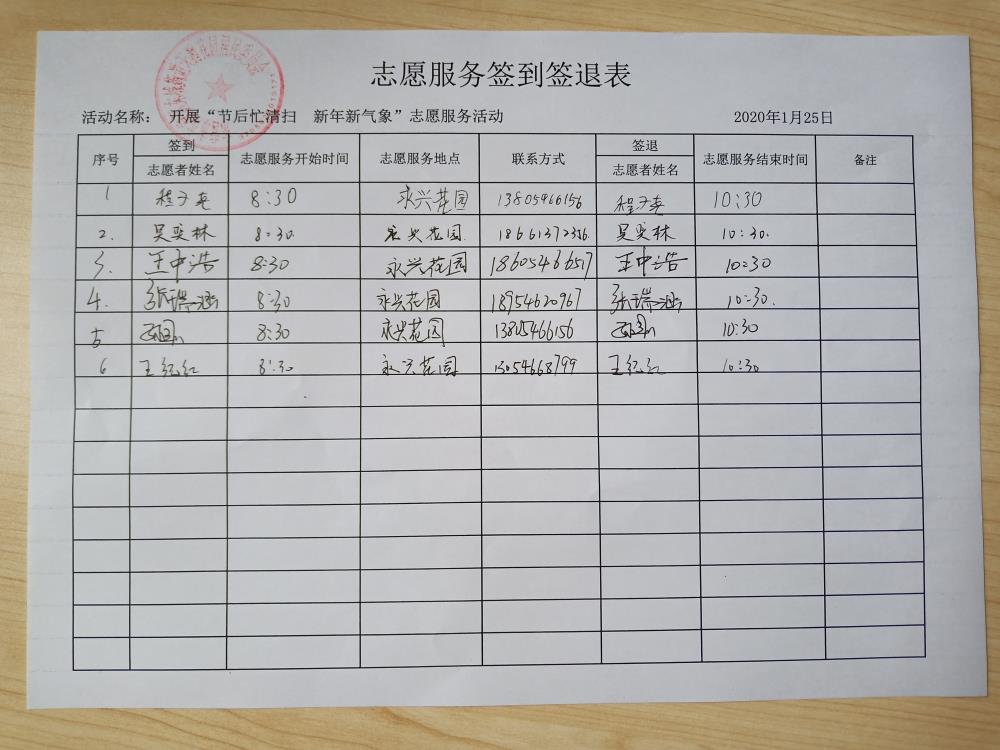 志愿服务签到签退表
活动名称： 开展“节后忙清扫 新年新气象”志愿服务活动 2020年1月25日
序号 签到 志愿者姓名 志愿服务开始时间 志愿服务地点 联系方式 签退 志愿者姓名 志愿服务结束时间 备注
1 8:30 永兴花园 13805466156 10:30
2. 吴奕林 8:30. 永兴花园. 吴奕林 10:30.
3. 王中浩 8:30 永兴花园 18605466517 王中浩 10:30
4. 张瑞涵 8:30 永兴花园 18954620967 张瑞涵 10:30.
5 8:30 永兴花园 13805466156 10:30
6 王纪红 8:30 永兴花园 13054668799 王纪红 10:30